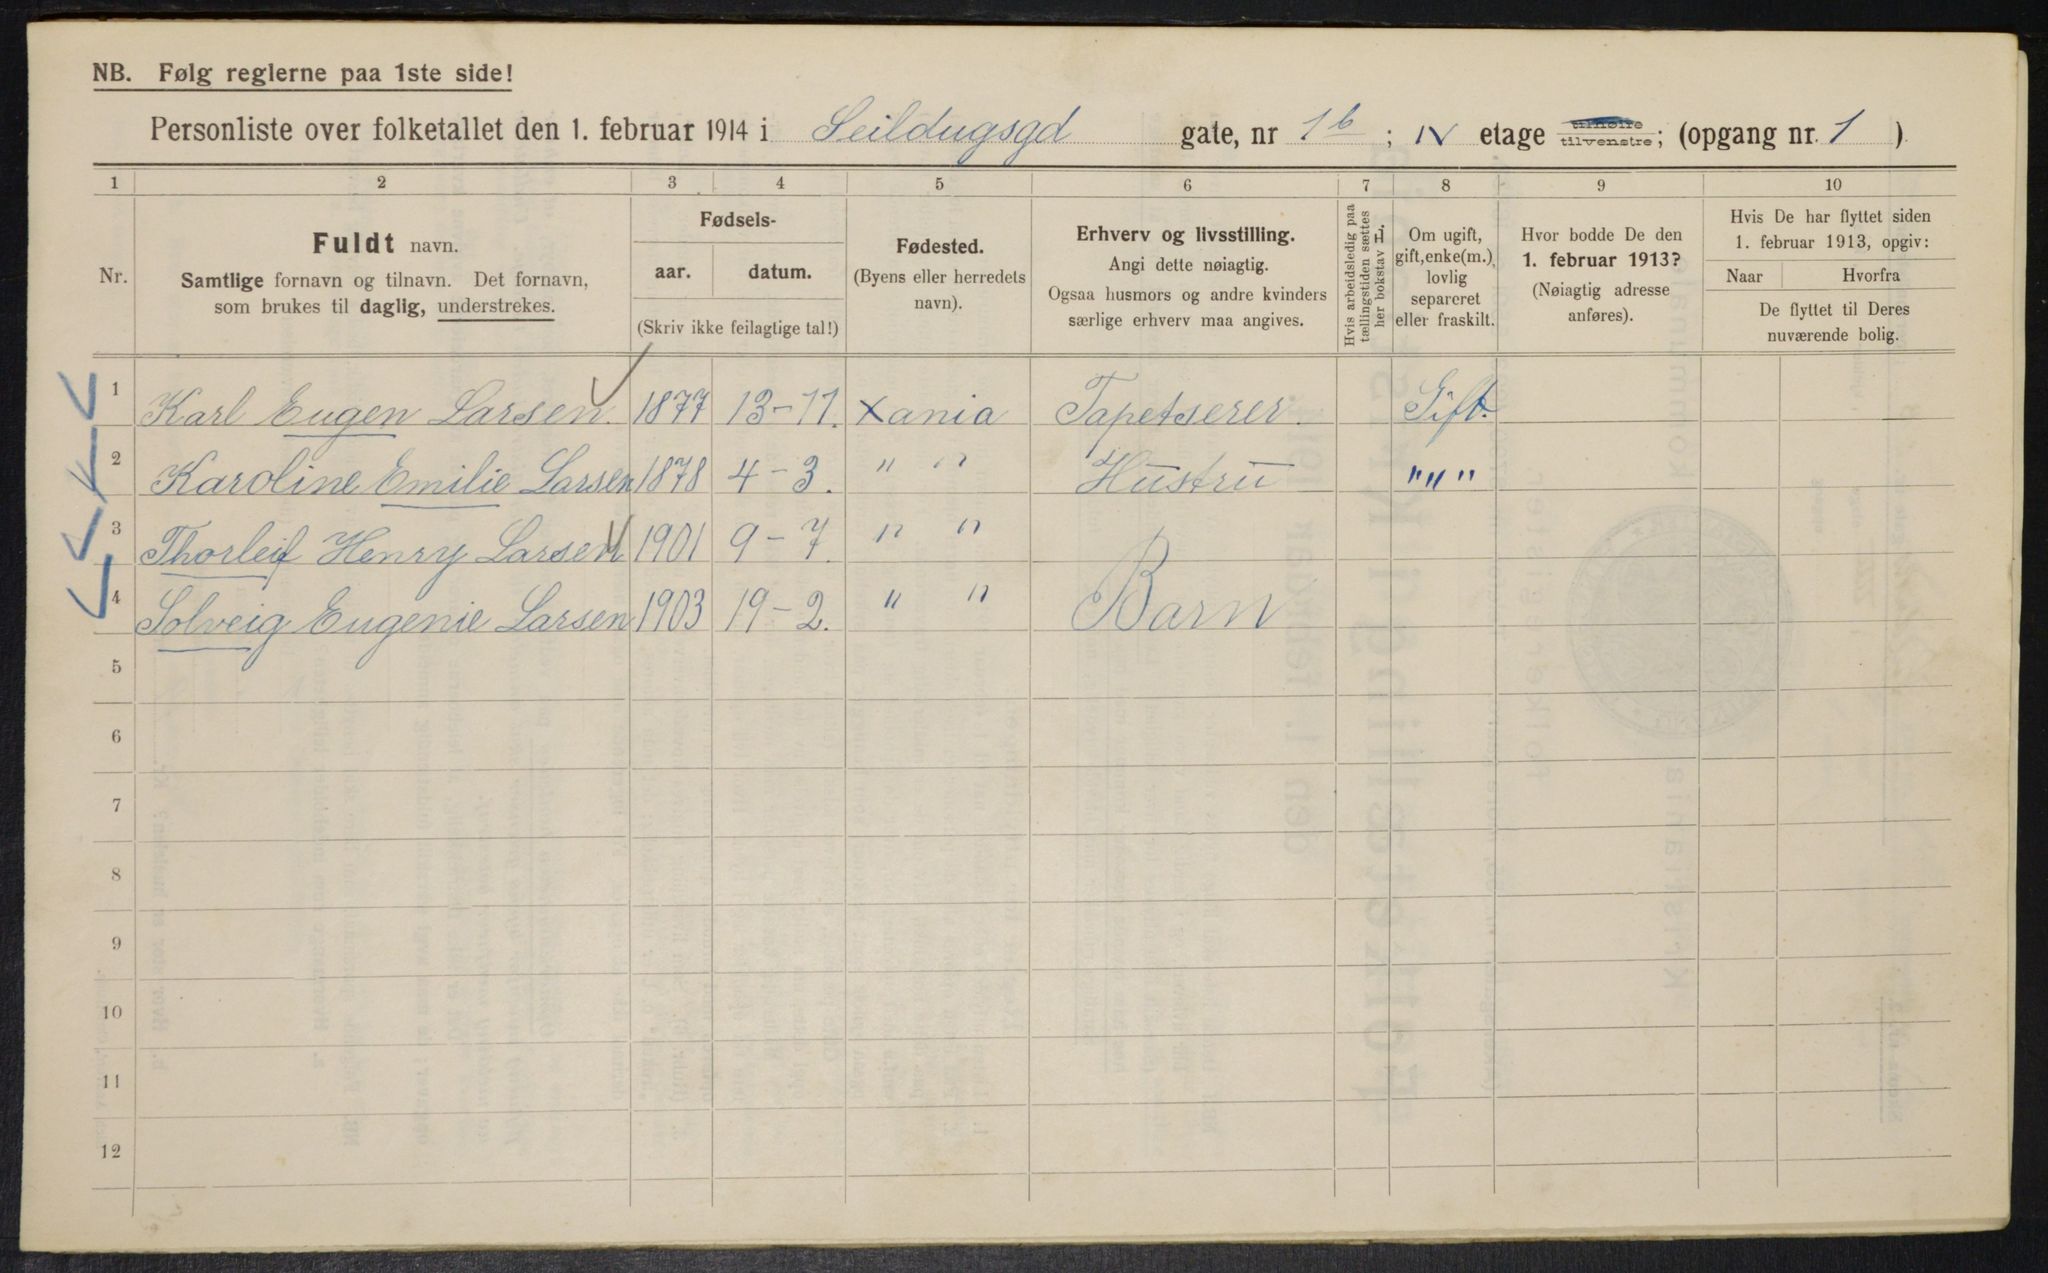 NB. Følg reglerne paa 1ste side!
Personliste over folketallet den 1. februar 1914 i Seildugsgd gate, nr 1b; IV etage tilhøire tilvenstre; (opgang nr. 1)
1 2 3 4 5 6 7 8 9 10
Nr.
Fuldt navn.
Samtlige fornavn og tilnavn. Det fornavn,
som brukes til daglig, understrekes.
Fødsels-
aar. datum.
(Skriv ikke feilagtige tal!)
Fødested.
(Byens eller herredets
navn).
Erhverv og livsstilling.
Angi dette nøiagtig.
Ogsaa husmors og andre kvinders
særlige erhverv maa angives.
Hvis arbeidsledig paa
tællingstiden sættes
her bokstav L.
Om ugift,
gift, enke(m.),
lovlig
separeret
eller fraskilt.
Hvor bodde De den
1. februar 1913?
(Nøiagtig adresse
anføres).
Hvis De har flyttet siden
1. februar 1913, opgiv:
Naar Hvorfra
De flyttet til Deres
nuværende bolig.
1 Karl Eugen Larsen. 1877 13-11. Xania Tapetserer. Gift.
2 Karoline Emilie Larsen 1878 4-3. " " Hustru " " "
3 Thorleif Henry Larsen 1901 9-7. " "
4 Solveig Eugenie Larsen 1903 19-2. " " Barn
5
6
7
8
9
10
11
12